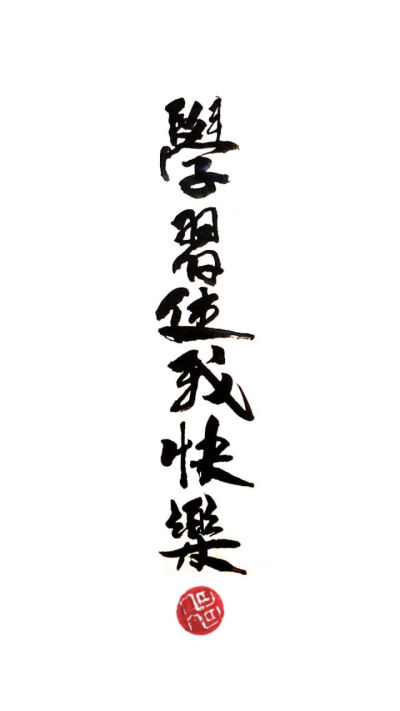 學習使我快樂